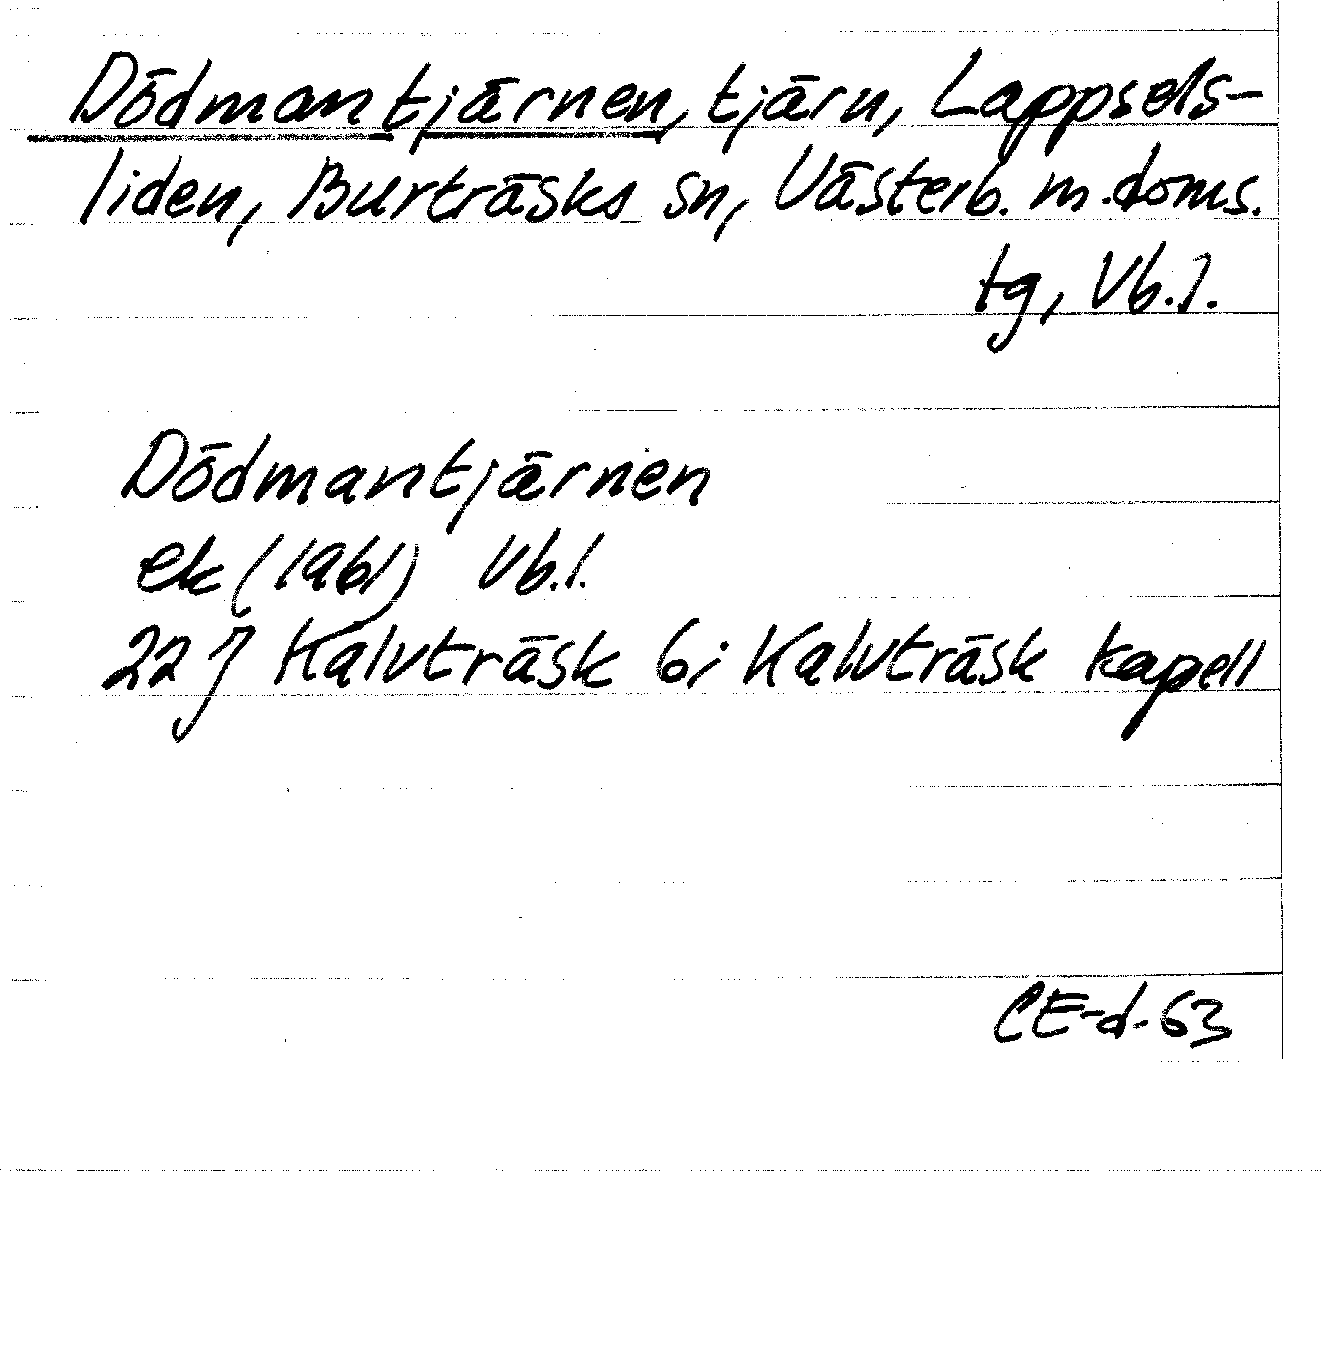 Dödmantjärnen, tjärn, Lappsels-
liden, Burträsks sn, Västerb. m. doms.
tg, Vb. l.
Dödmantjärnen
ek (1961) Vb. l.
22 J Kalvträsk 6i Kalvträsk kapell
CE-d-63